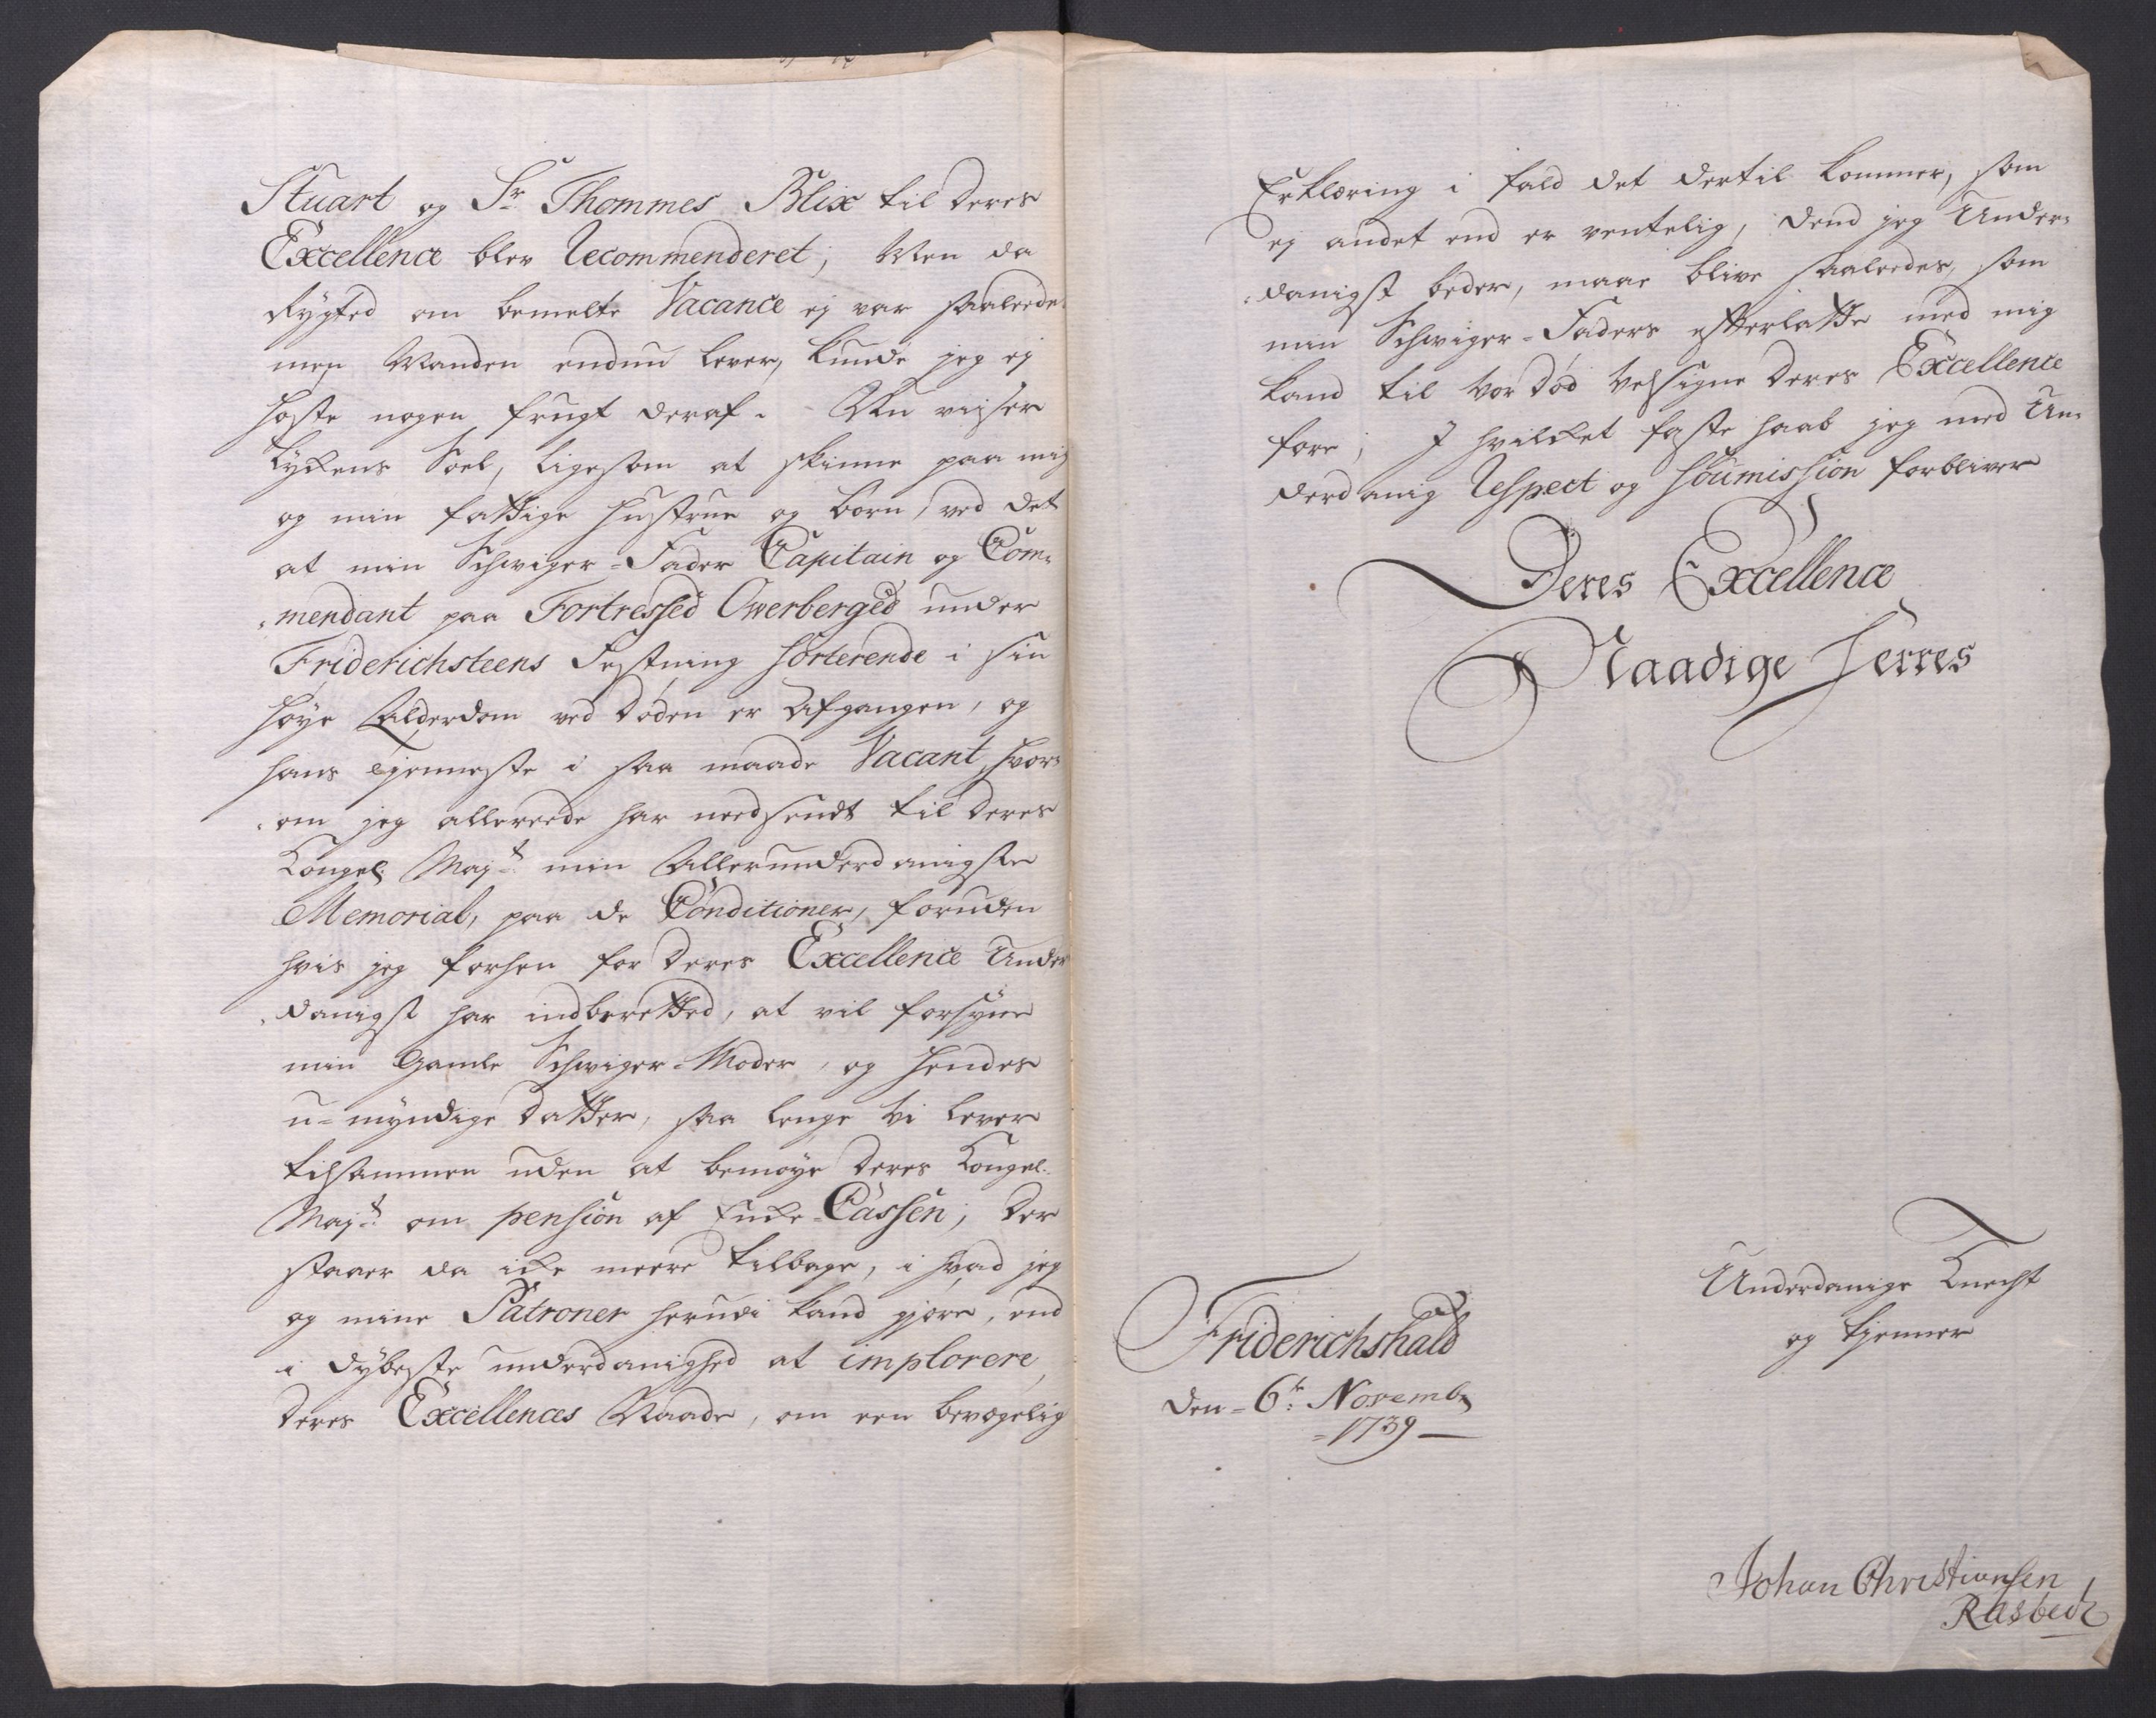 Stuart og Sr. Thommes Blix til deres
Excellence blev Recommenderet; Men da
Rygted om bemelte Vacance ej var saaleedes
men Manden endnu lever, kunde jeg ej
høste nogen frugt deraf. Nu viiser
Lyckens Soel, ligesom at skinne paa mig
og min fattige hustrue og børn, ved det
at min Schwiger-Fader Capitain og Com-
mendant paa Fortressed Owerberged under
Friderichsteens Festning sorterende i sin
høye Alderdom ved døden er Afgangen, og
hans tjenneste i saa maade Vacant, hvor-
om jeg allereede har needsendt til deres
Kongel. Majt. min Allerunderdanigste
Memorial, paa de Conditioner, foruden
hvis jeg forhen for deres Excellence Under-
danigst har indberetted, at vil forsyne
min Gamle Schwiger-Moder, og hendes
u-myndige datter, saa lenge vi lever
tilsammen uden at bemøye deres Kongel.
Majt. om pension af Encke-Cassen; Der
staaer da icke meere tilbage, i hvad jeg
og mine Patroner herudi kand gjøre, end
i dybeste underdanighed at implorere
deres Excellences Naade, om een bevogelig
Erklæring i fald det dertil kommer, som
ej andet end er ventelig, dend jeg Under-
danigst beder, maae blive saaleedes, som
min Schwiger-Faders efterlatte med mig
kand til vor død velsigne deres Excellence
fore; I hvilcket faste haab jeg med Un-
derdanig Respect og Soumission forbliver
Deres Excellence
Naadige Herres
Underdanige Knecht
og tjenner
Friderichshald
den 6te. Novembr.
1739
Johan Christiansen
Rasbech